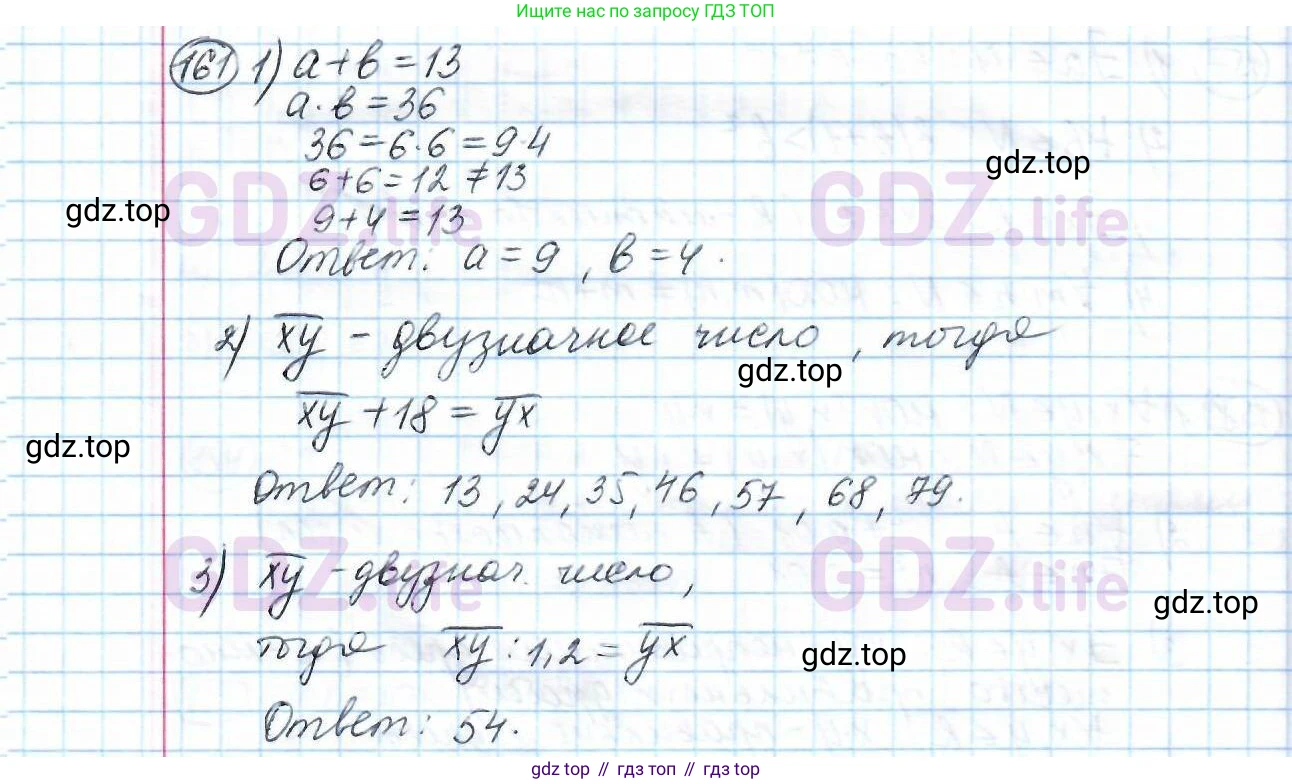 Ищите нас по запросу ГДЗ ТОП
161 1) a+b=13
a·b=36
36=6·6=9·4
6+6=12≠13
9+4=13
Ответ: a=9, b=4.
2) x̅y̅ – двузначное число, тогда
x̅y̅+18=y̅x̅
Ответ: 13, 24, 35, 46, 57, 68, 79.
3) x̅y̅ – двузнач. число,
тогда x̅y̅:1,2=y̅x̅
Ответ: 54.
gdz.top
gdz.top
GDZ.life
GDZ.life
gdz.top
gdz.top
GDZ.life
GDZ.life
gdz.top
gdz.top
gdz top // гдз топ // gdz top